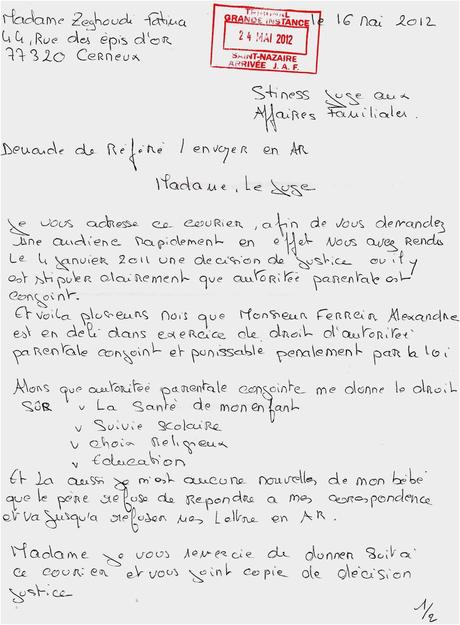 Madame Zeghoudi Fatiha
le 16 mai 2012
44, Rue des épis d'or
77320 Cerneux
TRIBUNAL
GRANDE INSTANCE
24 MAI 2012
SAINT-NAZAIRE
ARRIVÉE J.A.F.
Juge aux
Affaires Familiales.
Demande de Référé / envoyer en AR
Madame, Le Juge
Je vous adresse ce courier, afin de vous demandez
une audience rapidement en effet vous avez rendu
Le 4 janvier 2011 une decision de justice ou il y
est stipuler clairement que autoritée parentale est
conjoint.
Et voila plusieurs mois que Monsieur Ferreir Alexandre
est en deli dans exercice de droit d'autoritéé
parentale conjoint et punissable penalement par la loi
Alors que autoritée parentale conjointe me donne le droit
SÛR v La Santé de mon enfant
v Suivie scolaire
v Choix Religieux
v Education
Et La aussi je n'est aucune nouvelles de mon bébé
que le père refuse de repondre a mes corespondence
et va jusqu'a refuser mes Lettre en AR.
Madame je vous remercie de donner suita
ce courier et vous joint copie de décision
justice
1/2